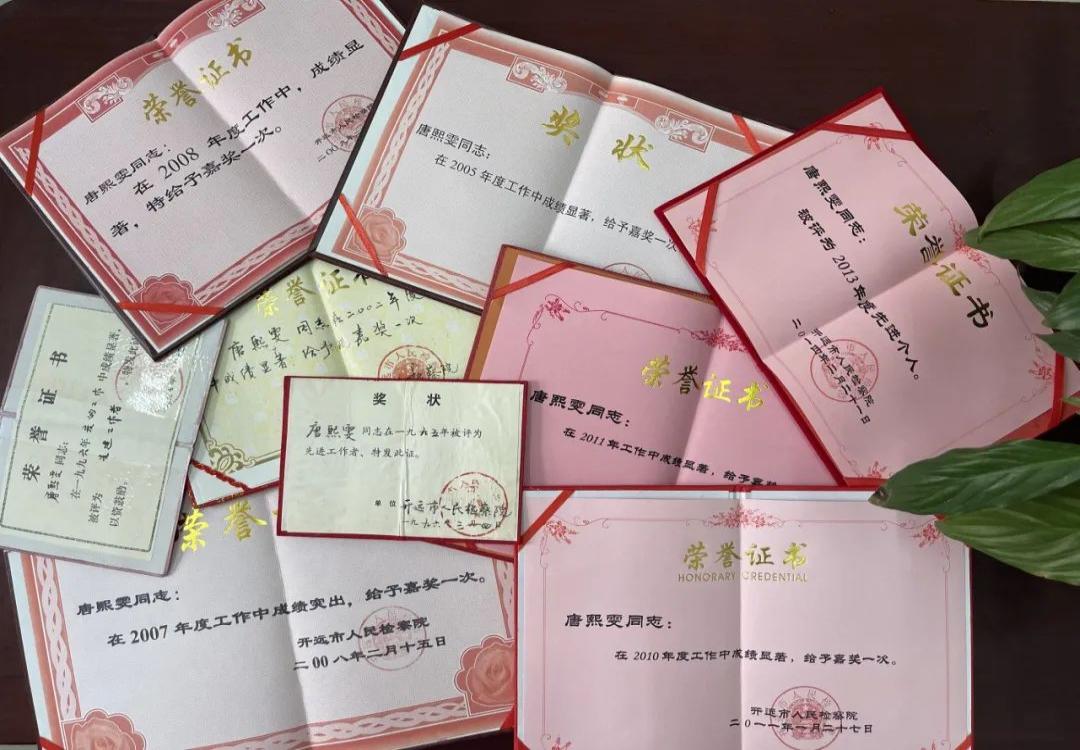 荣誉证书
唐熙雯同志：
在 2008 年度工作中，成绩显
著，特给予嘉奖一次。
开远市人民检察院
奖 状
唐熙雯同志：
在 2005 年度工作中成绩显著，给予嘉奖一次
荣誉证书
唐熙雯同志：
被评为 2013 年度先进个人。
开远市人民检察院
荣誉证书
唐熙雯 同志在二〇〇二年度
给予嘉奖一次
荣誉证书
唐熙雯同志：
在 2011 年工作中成绩显著，给予嘉奖
荣誉证书
唐熙雯 同志：
在一九九六年 工作中成绩显著，
被评为 先进工作者
以资鼓励。
奖 状
唐熙雯 同志在一九九五年被评为
先进工作者、特发此证。
单位 开远市人民检察院
一九九六年三月四日
荣誉
唐熙雯同志：
在 2007 年度工作中成绩突出，给予嘉奖一次。
开远市人民检察院
二 00 八年二月十五日
荣誉证书
HONORARY CREDENTIAL
唐熙雯同志：
在 2010 年度工作中成绩显著，给予嘉奖一次。
开远市人民检察院
二〇一一年一月二十七日